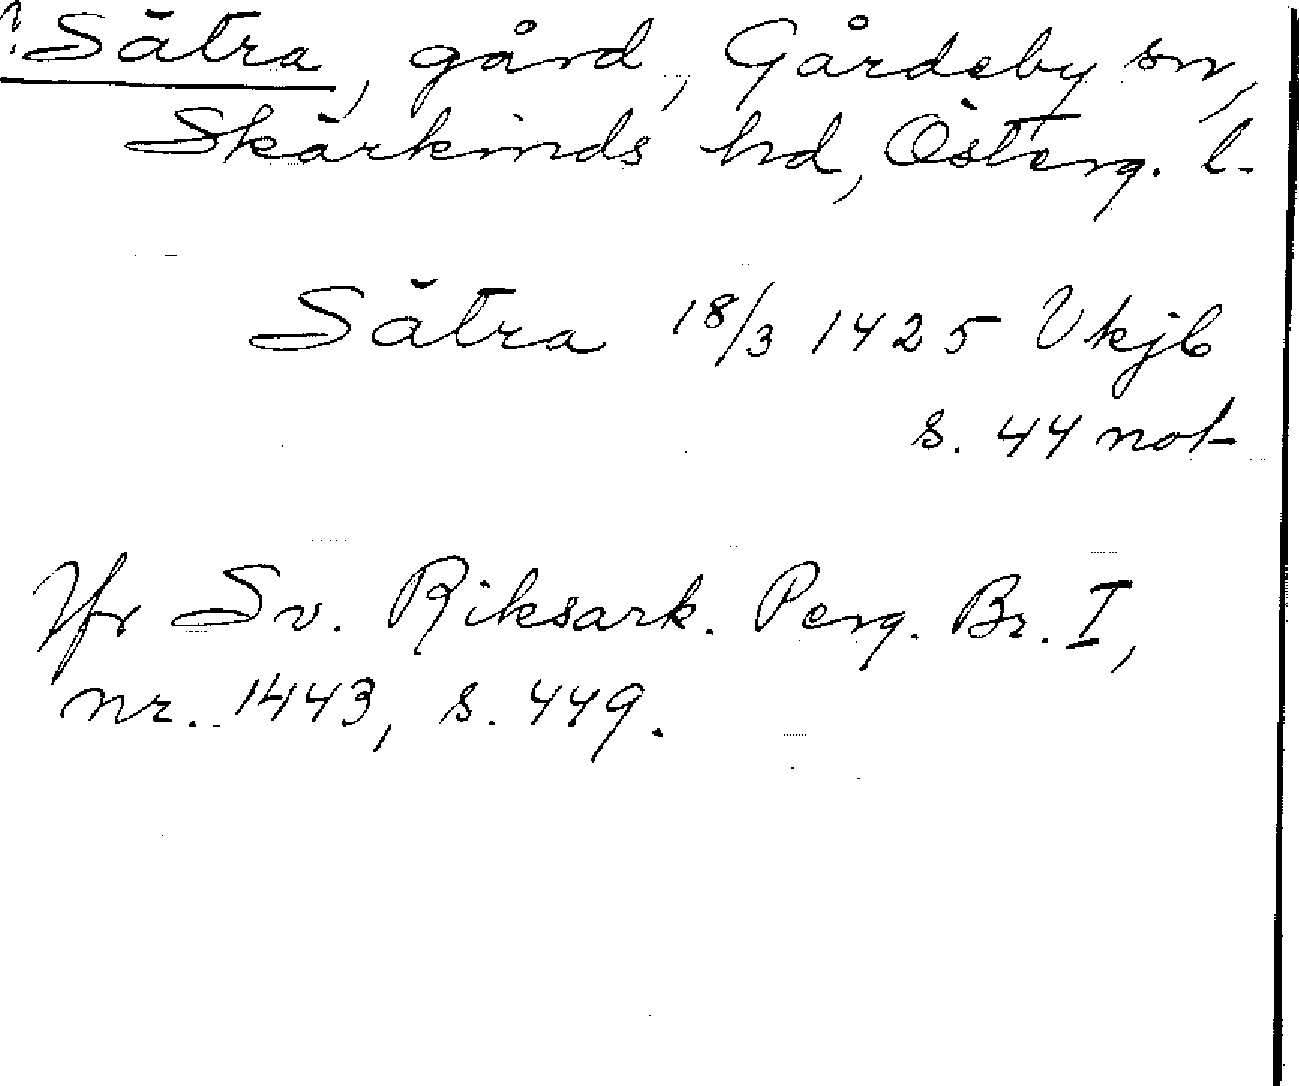 ? Sätra, gård, Gårdeby sn,
Skärkinds hd, Österg. l.
Sätra 18/3 1425 Vkjb
s. 44 not
Jfr Sv. Riksark. Perg. Br. I,
nr. 1443, s. 449.